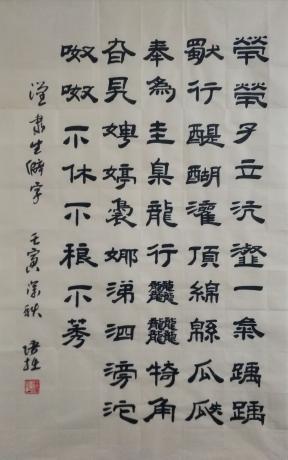 煢煢孑立沆瀣一氣踽踽
獨行醍醐灌頂綿緜瓜瓞
奉為圭臬龍行龘龘犄角
旮旯娉婷裊娜涕泗滂沱
呶呶不休不稂不莠
生僻字 壬寅深秋